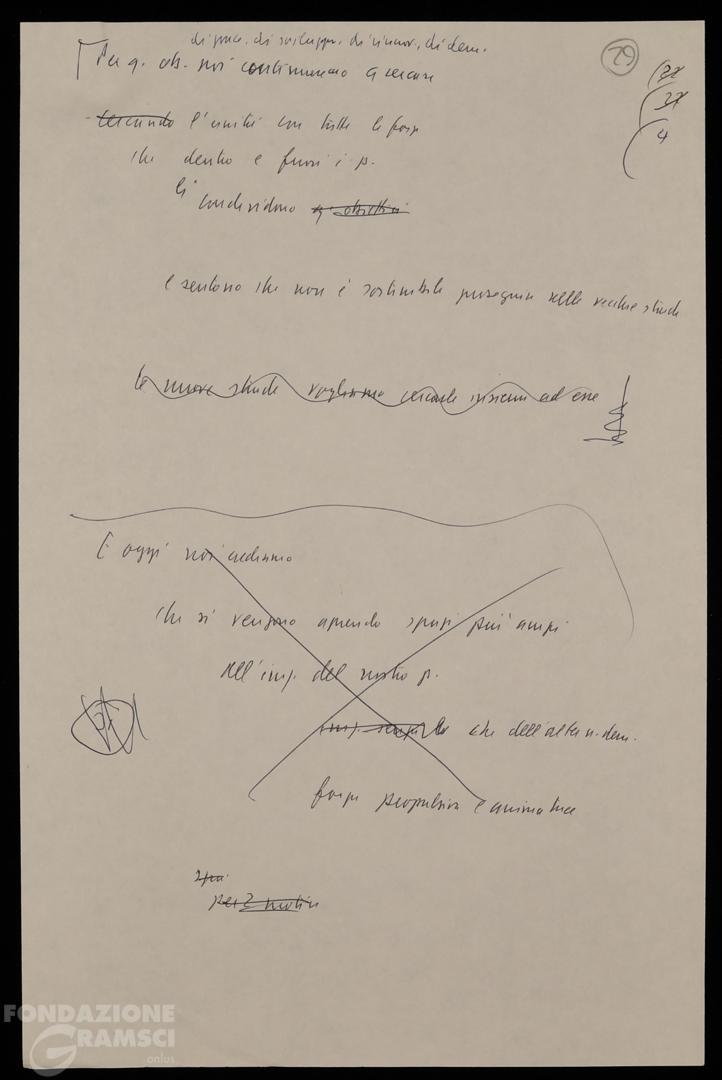 di pace, di sviluppo, di rinnov., di dem.
29
Per q. ob. noi continueremo a cercare
- cercando l'unità con tutte le forze
che dentro e fuori i p.
li condividono q. obiettivi
e sentono che non è sostenibile proseguire nelle vecchie strade
le nuove strade vogliamo cercarle insieme ad esse
E oggi noi crediamo
che si vengono aprendo spazi più ampi
all'iniz. del nostro p.
che dell'altern. dem.
forza propulsiva e animatrice
per 2 motivi
FONDAZIONE
GRAMSCI
onlus